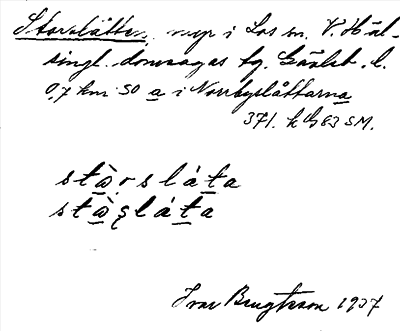 Storslåtten, myr i Los sn. V. Häl-
singl. domsagas tg. Gävleb. l.
0,7 km SO a i Norrbyslåttarna
371. k 83 SM.
stɑ̀ṛsláta
stɑ̀ʂláta
Ivar Bengtsson 1937